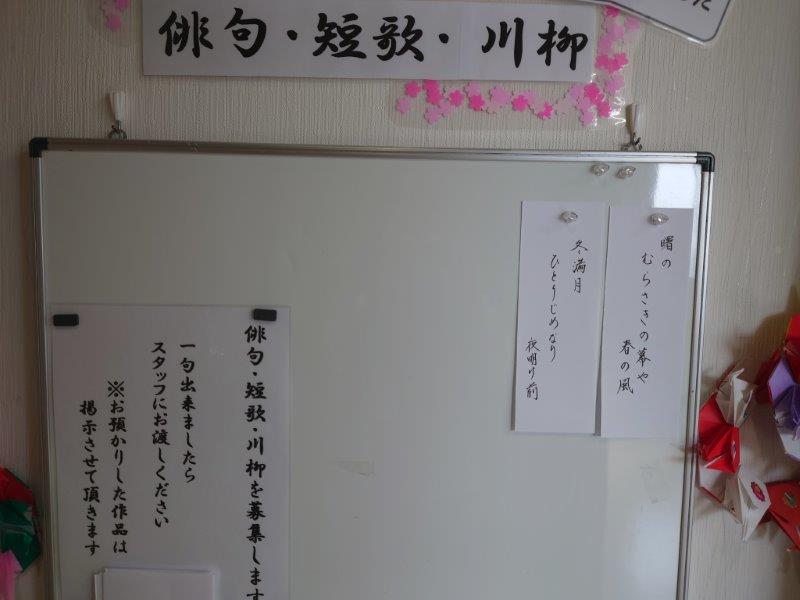 俳句・短歌・川柳
曙の
むらさきの幕や
春の風
冬満月
ひとりじめなり
夜明け前
俳句・短歌・川柳を募集します
一句出来ましたら
スタッフにお渡しください
※お預かりした作品は
掲示させて頂きます